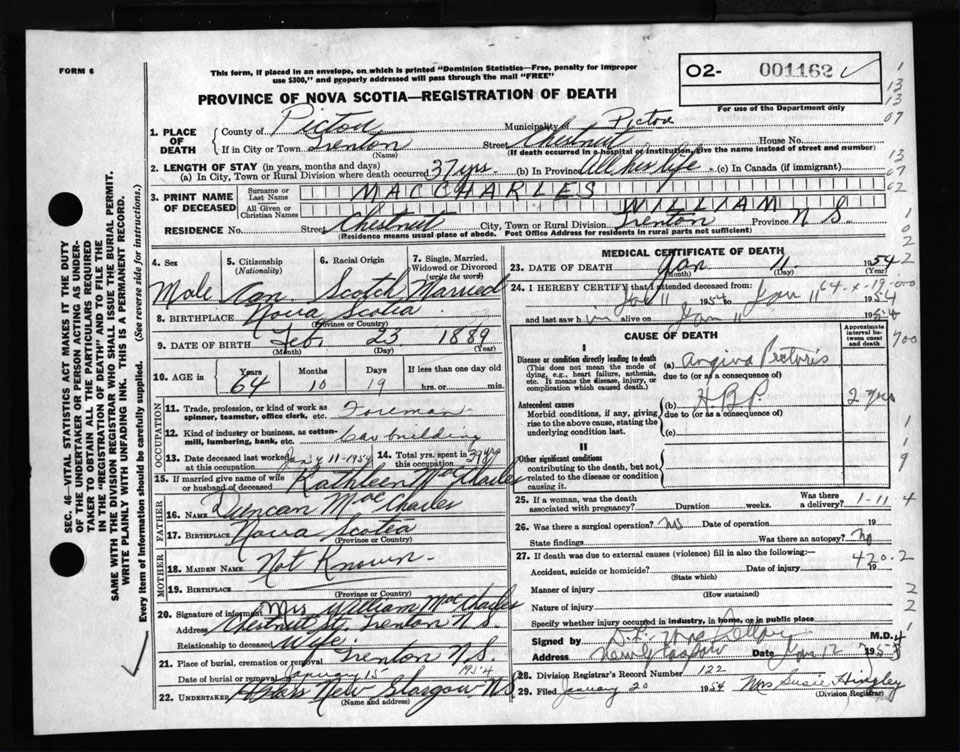 FORM 6
This form, if placed in an envelope, on which is printed "Dominion Statistics—Free, penalty for improper
use $300," and properly addressed will pass through the mail "FREE"
PROVINCE OF NOVA SCOTIA—REGISTRATION OF DEATH
02- 001162
For use of the Department only
1. PLACE OF DEATH County of Pictou Municipality of Pictou
If in City or Town Trenton (Name) Street Chestnut House No.
(If death occurred in a hospital or institution, give the name instead of street and number)
2. LENGTH OF STAY (in years, months and days)
(a) In City, Town or Rural Division where death occurred 37 yrs. (b) In Province All his life (c) In Canada (if immigrant)
3. PRINT NAME OF DECEASED Surname or Last Name MACCHARLES
All Given or Christian Names WILLIAM
RESIDENCE No. Street Chestnut City, Town or Rural Division Trenton Province N S.
(Residence means usual place of abode. Post Office Address for residents in rural parts not sufficient)
4. Sex Male
5. Citizenship (Nationality) Can
6. Racial Origin Scotch
7. Single, Married, Widowed or Divorced (write the word) Married
8. BIRTHPLACE Nova Scotia
(Province or Country)
9. DATE OF BIRTH Feb (Month) 23 (Day) 1889 (Year)
10. AGE in Years 64 Months 10 Days 19 If less than one day old hrs. or min.
OCCUPATION
11. Trade, profession, or kind of work as spinner, teamster, office clerk, etc. Foreman
12. Kind of industry or business, as cotton-mill, lumbering, bank, etc. Car building
13. Date deceased last worked at this occupation 11-1954 14. Total yrs. spent in this occupation 39 yrs
15. If married give name of wife or husband of deceased Kathleen MacCharles
FATHER
16. NAME Duncan MacCharles
17. BIRTHPLACE Nova Scotia
(Province or Country)
MOTHER
18. MAIDEN NAME Not Known
19. BIRTHPLACE
(Province or Country)
20. Signature of informant Mrs William MacCharles
Address Chestnut St, Trenton N.S.
Relationship to deceased Wife
21. Place of burial, cremation or removal Trenton N S
Date of burial or removal January 15 1954
22. UNDERTAKER New Glasgow N.S.
(Name and address)
MEDICAL CERTIFICATE OF DEATH
23. DATE OF DEATH Jan (Month) 11 (Day) 1954 (Year)
24. I HEREBY CERTIFY that I attended deceased from:
Jan 11 1954 to Jan 11 1954
and last saw him alive on Jan 11 1954
CAUSE OF DEATH
Approximate interval between onset and death
I
Disease or condition directly leading to death
(This does not mean the mode of dying, e.g., heart failure, asthenia, etc. It means the disease, injury, or complication which caused death.)
(a) Angina Pectoris
due to (or as a consequence of)
Antecedent causes
Morbid conditions, if any, giving rise to the above cause, stating the underlying condition last.
(b) HBP 2 yrs
due to (or as a consequence of)
(c)
II
Other significant conditions
contributing to the death, but not related to the disease or condition causing it.
25. If a woman, was the death associated with pregnancy? Duration weeks. Was there a delivery?
1-11-4
26. Was there a surgical operation? No Date of operation 19
State findings Was there an autopsy? No
27. If death was due to external causes (violence) fill in also the following:
420.2
Accident, suicide or homicide? (State which) Date of injury 19
Manner of injury
(How sustained)
Nature of injury
Specify whether injury occurred in industry, in home, or in public place
Signed by M.D.
Address New Glasgow Date Jan 12
28. Division Registrar's Record Number 122
29. Filed January 20 1954 Mrs Susie Hingley
(Division Registrar)
SEC. 46—VITAL STATISTICS ACT MAKES IT THE DUTY
OF THE UNDERTAKER OR PERSON ACTING AS UNDER-
TAKER TO OBTAIN ALL THE PARTICULARS REQUIRED
IN THE "REGISTRATION OF DEATH" AND TO FILE THE
SAME WITH THE DIVISION REGISTRAR WHO SHALL ISSUE THE BURIAL PERMIT.
WRITE PLAINLY WITH UNFADING INK. THIS IS A PERMANENT RECORD.
Every item of Information should be carefully supplied. (See reverse side for instructions.)